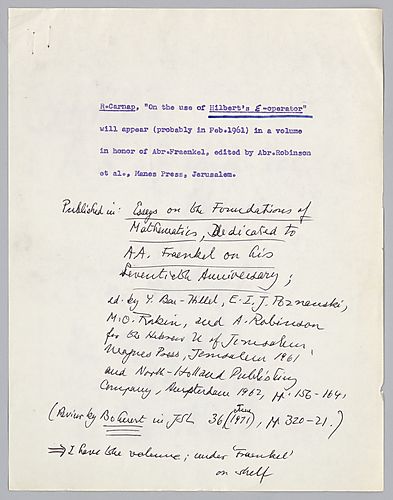 R.Carnap, "On the use of Hilbert's ε-operator"
will appear (probably in Feb.1961) in a volume
in honor of Abr.Fraenkel, edited by Abr.Robinson
et al., Manes Press, Jerusalem.
Published in: Essays on the Foundations of
Mathematics, Dedicated to
A.A. Fraenkel on his
Seventieth Anniversary;
ed. by Y. Bar-Hillel, E.I.J. Poznanski,
M.O. Rabin, and A. Robinson
for the Hebrew U of Jerusalem,
Magnes Press, Jerusalem 1961
and North-Holland Publishing
Company, Amsterdam 1962, pp. 156-164.
(Review by Bo in JSL 36 (June 1971), pp. 320-21.)
⇒ I have the volume; under 'Fraenkel'
on shelf